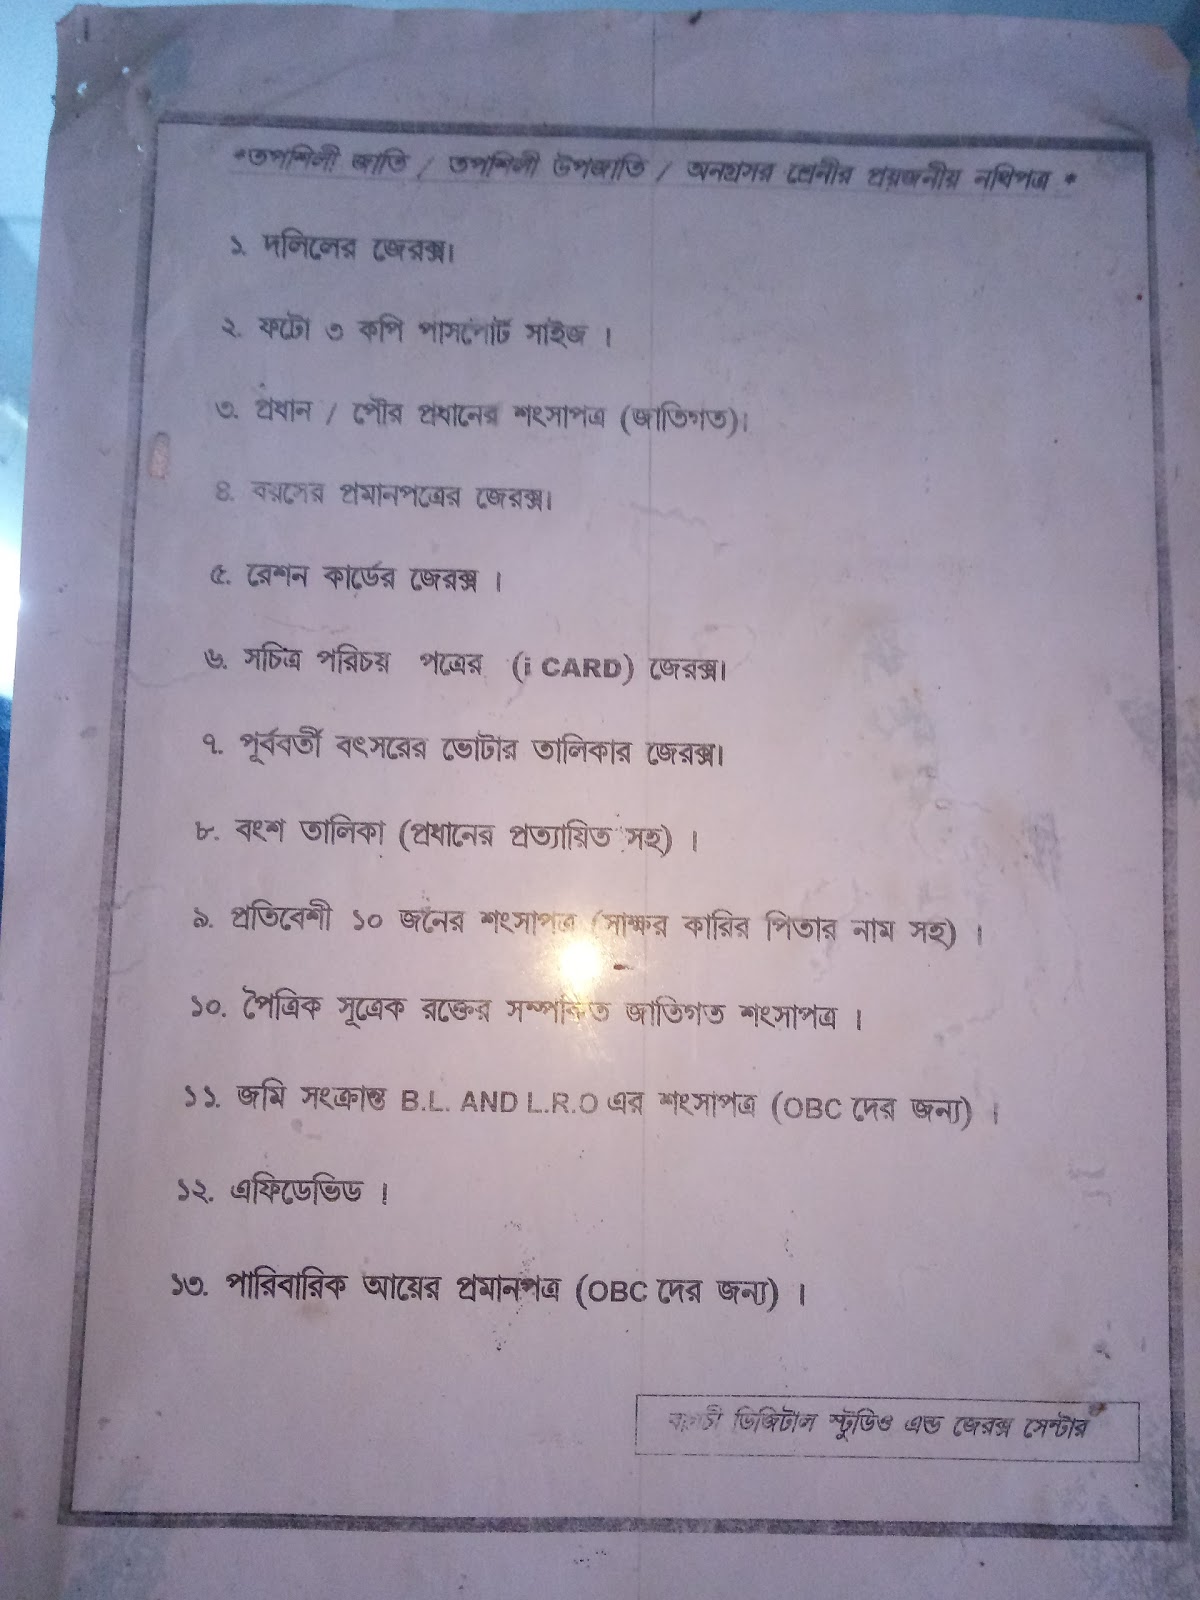 *তপশিলী জাতি / তপশিলী উপজাতি / অনগ্রসর শ্রেনীর প্রয়জনীয় নথিপত্র *
১. দলিলের জেরক্স।
২. ফটো ৩ কপি পাসপোর্ট সাইজ ।
৩. প্রধান / পৌর প্রধানের শংসাপত্র (জাতিগত)।
৪. বয়সের প্রমানপত্রের জেরক্স।
৫. রেশন কার্ডের জেরক্স ।
৬. সচিত্র পরিচয় পত্রের (i CARD) জেরক্স।
৭. পূর্ববর্তী বৎসরের ভোটার তালিকার জেরক্স।
৮. বংশ তালিকা (প্রধানের প্রত্যায়িত সহ) ।
৯. প্রতিবেশী ১০ জনের শংসাপত্র (সাক্ষর কারির পিতার নাম সহ) ।
১০. পৈত্রিক সূত্রেক রক্তের সম্পর্কিত জাতিগত শংসাপত্র ।
১১. জমি সংক্রান্ত B.L. AND L.R.O এর শংসাপত্র (OBC দের জন্য) ।
১২. এফিডেভিড ।
১৩. পারিবারিক আয়ের প্রমানপত্র (OBC দের জন্য) ।
ডিজিটাল স্টুডিও এন্ড জেরক্স সেন্টার